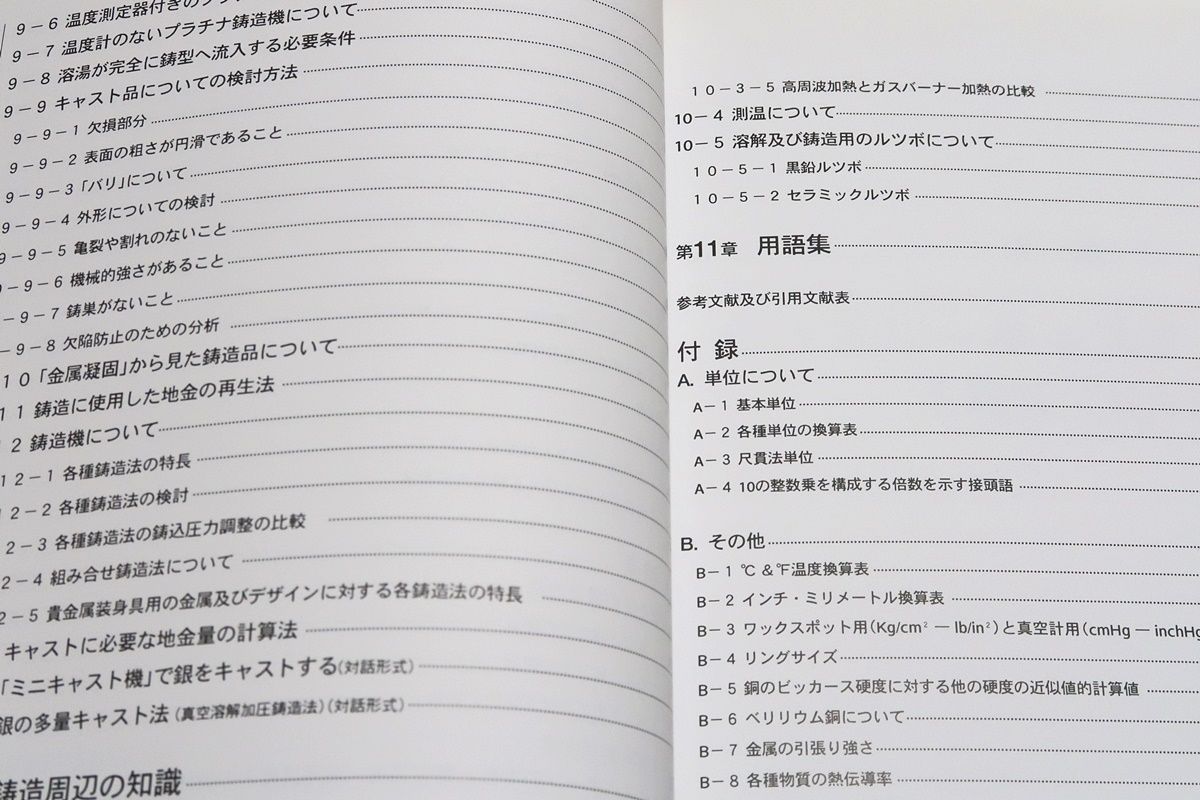 9－6 温度測定器付きの
9－7 温度計のないプラチナ鋳造機について
9－8 溶湯が完全に鋳型へ流入する必要条件
9－9 キャスト品についての検討方法
9－9－1 欠損部分
9－9－2 表面の粗さが円滑であること
9－9－3 「バリ」について
9－9－4 外形についての検討
9－9－5 亀裂や割れのないこと
9－9－6 機械的強さがあること
－9－7 鋳巣がないこと
－9－8 欠陥防止のための分析
10 「金属凝固」から見た鋳造品について
11 鋳造に使用した地金の再生法
12 鋳造機について
12－1 各種鋳造法の特長
12－2 各種鋳造法の検討
2－3 各種鋳造法の鋳込圧力調整の比較
2－4 組み合せ鋳造法について
2－5 貴金属装身具用の金属及びデザインに対する各鋳造法の特長
キャストに必要な地金量の計算法
「ミニキャスト機」で銀をキャストする(対話形式)
銀の多量キャスト法 (真空溶解加圧鋳造法)(対話形式)
鋳造周辺の知識
10－3－5 高周波加熱とガスバーナー加熱の比較
10－4 測温について
10－5 溶解及び鋳造用のルツボについて
10－5－1 黒鉛ルツボ
10－5－2 セラミックルツボ
第11章 用語集
参考文献及び引用文献表
付 録
A. 単位について
A－1 基本単位
A－2 各種単位の換算表
A－3 尺貫法単位
A－4 10の整数乗を構成する倍数を示す接頭語
B. その他
B－1 ℃ &℉温度換算表
B－2 インチ・ミリメートル換算表
B－3 ワックスポット用(Kg/cm² － lb/in²)と真空計用(cmHg － inchHg
B－4 リングサイズ
B－5 銅のビッカース硬度に対する他の硬度の近似値的計算値
B－6 ベリリウム銅について
B－7 金属の引張り強さ
B－8 各種物質の熱伝導率